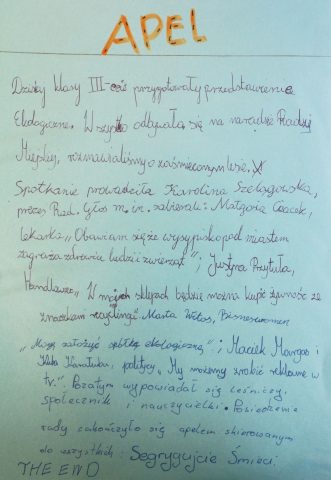 APEL
Dzisiaj klasy III-cie przygotowały przedstawienie
Ekologiczne. Wszystko odbywało się na naradzie Radzie
Miejskiej, rozmawialiśmy o zaśmieconym lesie.
Spotkanie prowadziła Karolina Szelągowska,
prezes Rad. Głos m.in. zabierali: Małgosia
lekarka „Obawiam się że wysypisko pod miastem
zagraża zdrowiu ludzi i zwierząt"; Justyna Przytuła,
Handlowiec „W moich sklepach będzie można kupić żywność ze
znaczkiem recyclingu". Marta Włos, Bisneswomen
„Mogę założyć spółkę ekologiczną"; Maciek
i Kuba politycy „My możemy zrobić reklamę w
tv.". Pozatym wypowiadał się leśniczy,
społecznik i nauczycielki. Posiedzenie
rady zakończyło się apelem skierowanym
do wszystkich: Segregujcie Śmieci.
THE END